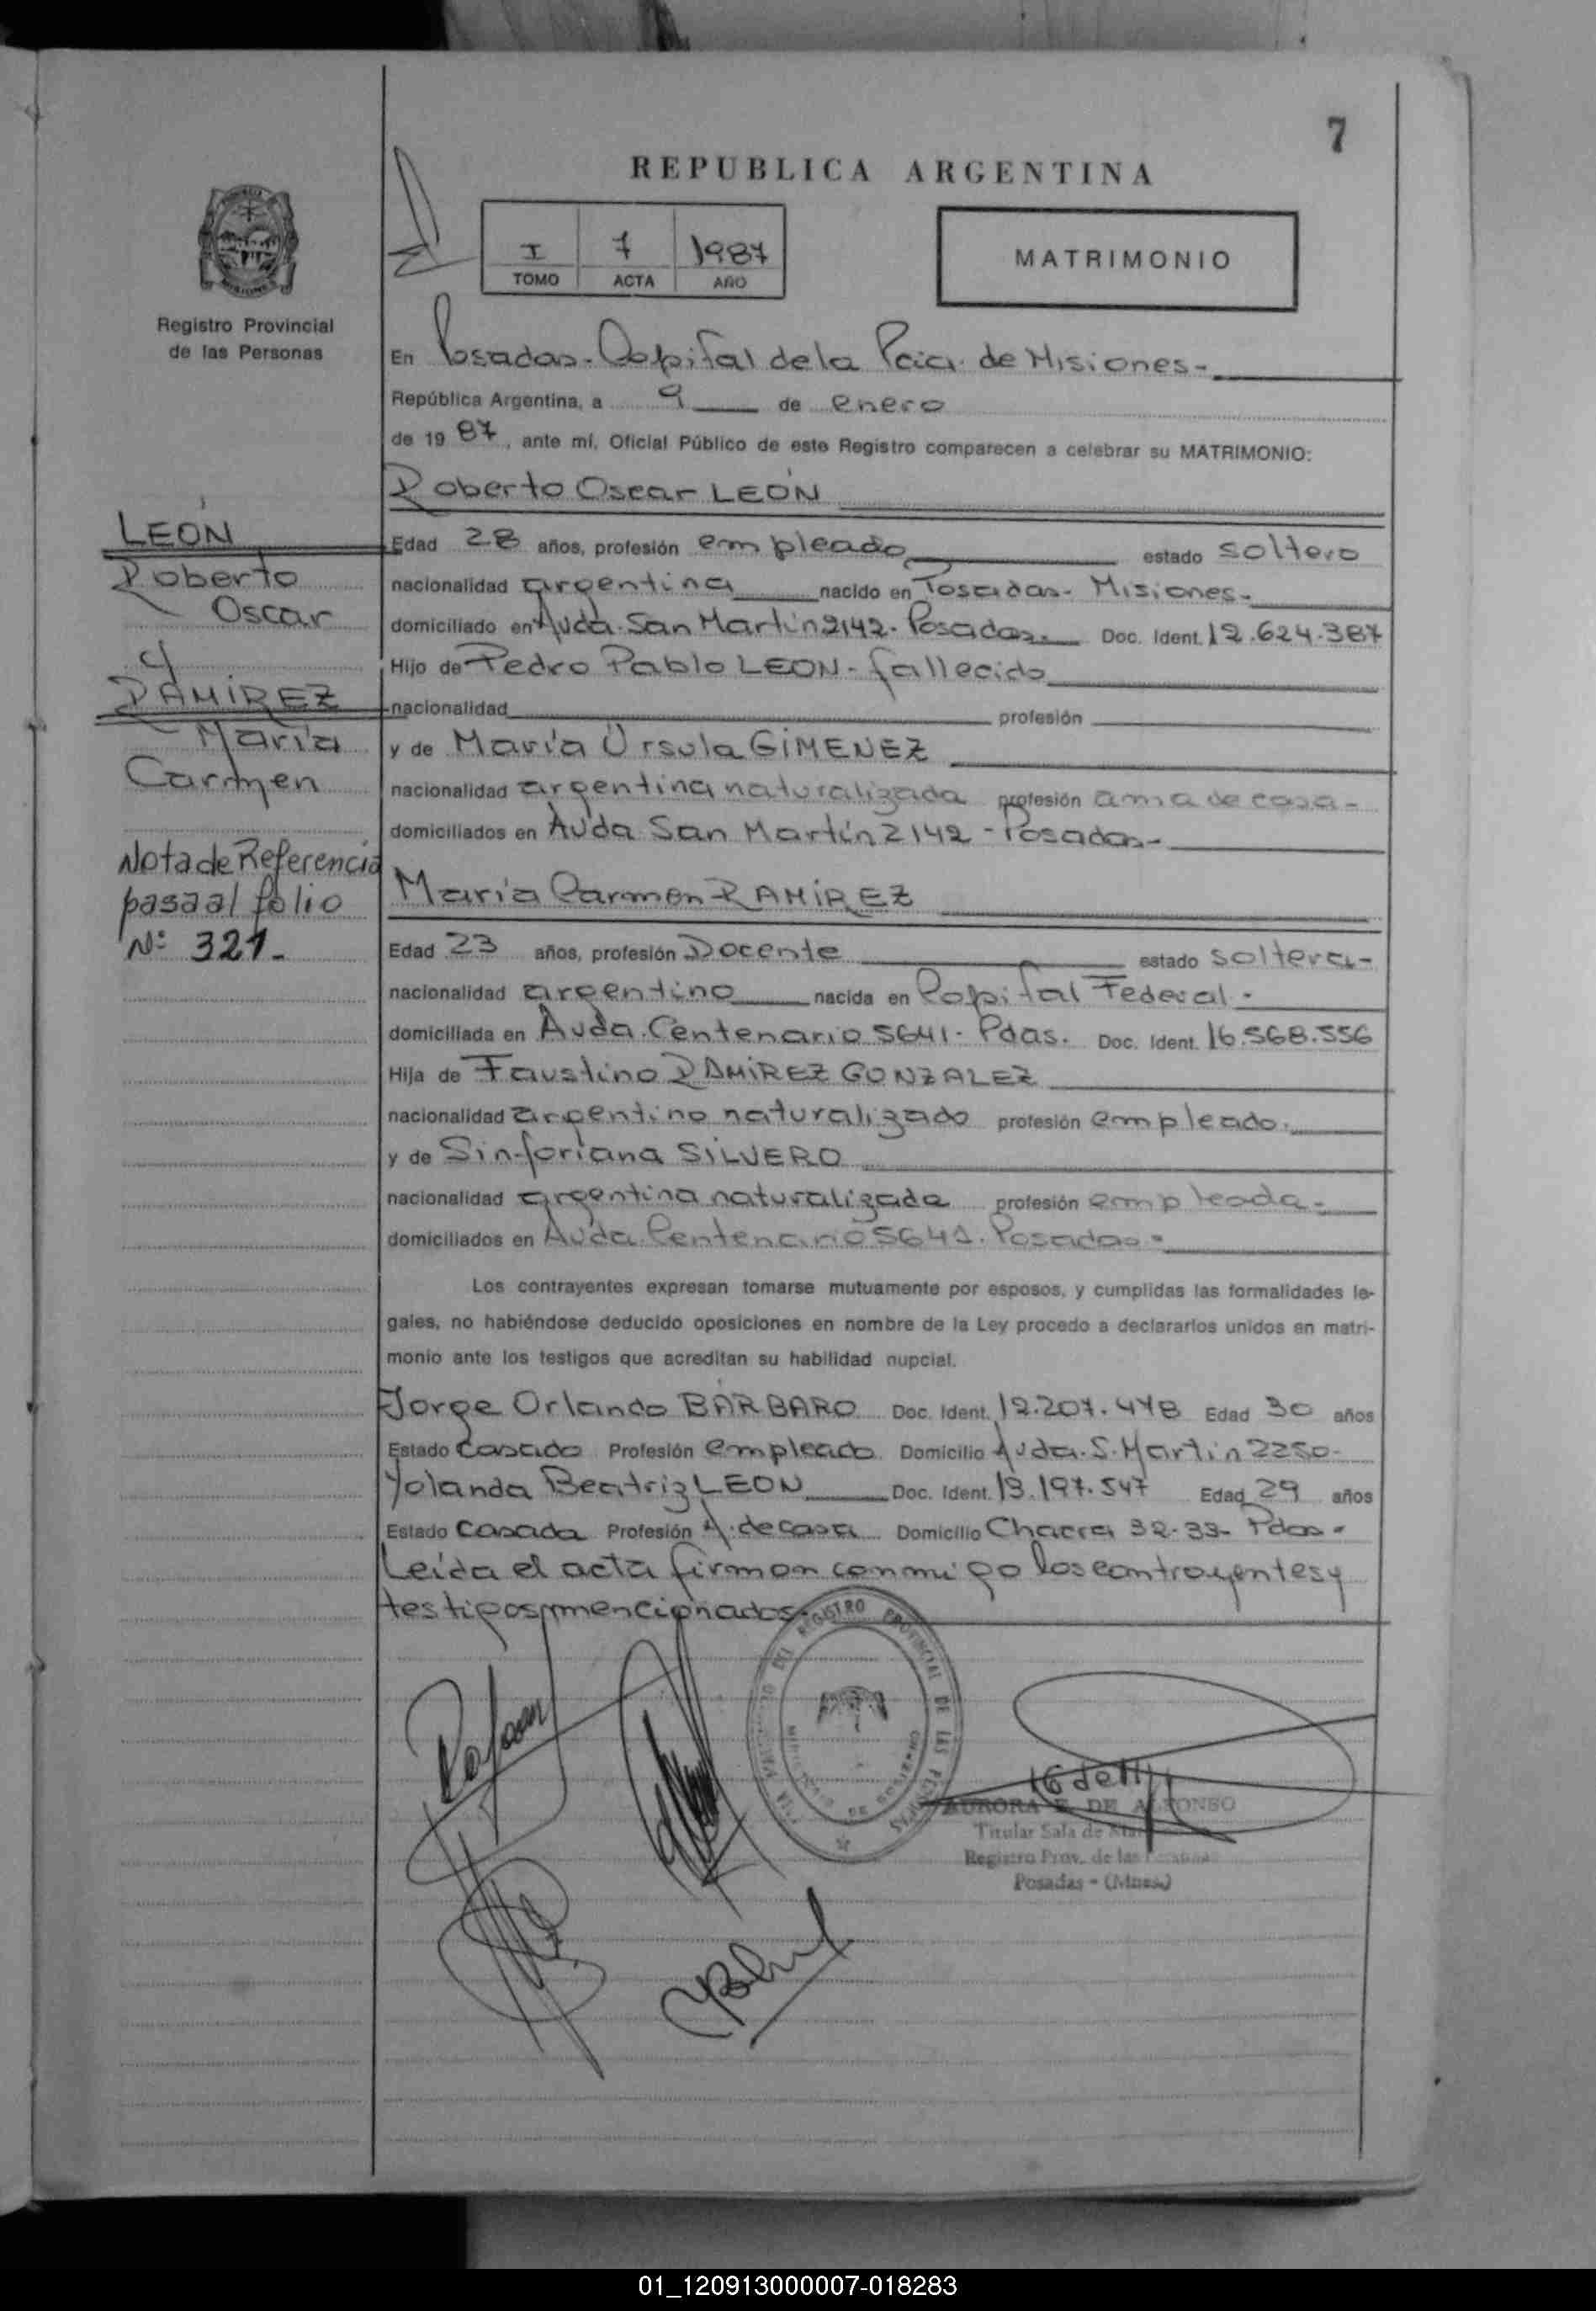 7
REPUBLICA ARGENTINA
I 7 1987
TOMO ACTA AÑO
MATRIMONIO
Registro Provincial
de las Personas
En Posadas-Capital de la Pcia. de Misiones-
República Argentina, a 9 de enero
de 19 87, ante mí, Oficial Público de este Registro comparecen a celebrar su MATRIMONIO:
Roberto Oscar LEÓN
LEÓN
Roberto
Oscar
y
RAMÍREZ
María
Carmen
Nota de Referencia
pasa al folio
Nº 321-
Edad 28 años, profesión empleado estado soltero
nacionalidad argentina nacido en Posadas- Misiones-
domiciliado en Avda. San Martín 2142- Posadas. Doc. Ident. 12.624.387
Hijo de Pedro Pablo LEON- fallecido
nacionalidad profesión
y de María Úrsula GIMENEZ
nacionalidad argentina naturalizada profesión ama de casa-
domiciliados en Avda San Martín 2142 - Posadas-
María Carmen RAMÍREZ
Edad 23 años, profesión Docente estado soltera-
nacionalidad argentina nacida en Capital Federal-
domiciliada en Avda. Centenario 5641- Pdas. Doc. Ident. 16.568.556
Hija de Faustino RAMÍREZ GONZALEZ
nacionalidad argentino naturalizado profesión empleado.
y de Sinforiana SILVERO
nacionalidad argentina naturalizada profesión empleada-
domiciliados en Avda. Centenario 5641. Posadas-
Los contrayentes expresan tomarse mutuamente por esposos, y cumplidas las formalidades le-
gales, no habiéndose deducido oposiciones en nombre de la Ley procedo a declararlos unidos en matri-
monio ante los testigos que acreditan su habilidad nupcial.
Jorge Orlando BÁRBARO Doc. Ident. 12.207.478 Edad 30 años
Estado Casado Profesión empleado Domicilio Avda. S. Martín 2250-
Yolanda Beatriz LEON Doc. Ident. 13.197.547 Edad 29 años
Estado casada Profesión A. de casa Domicilio Chacra 32-33- Pdas-
Leída el acta firman conmigo los contrayentes y
testigos mencionados-
REGISTRO PROVINCIAL DE LAS PERSONAS
AURORA E. DE ALFONSO
Titular Sala de
Registro Prov. de las Personas
Posadas - (Mnes.)
01_120913000007-018283